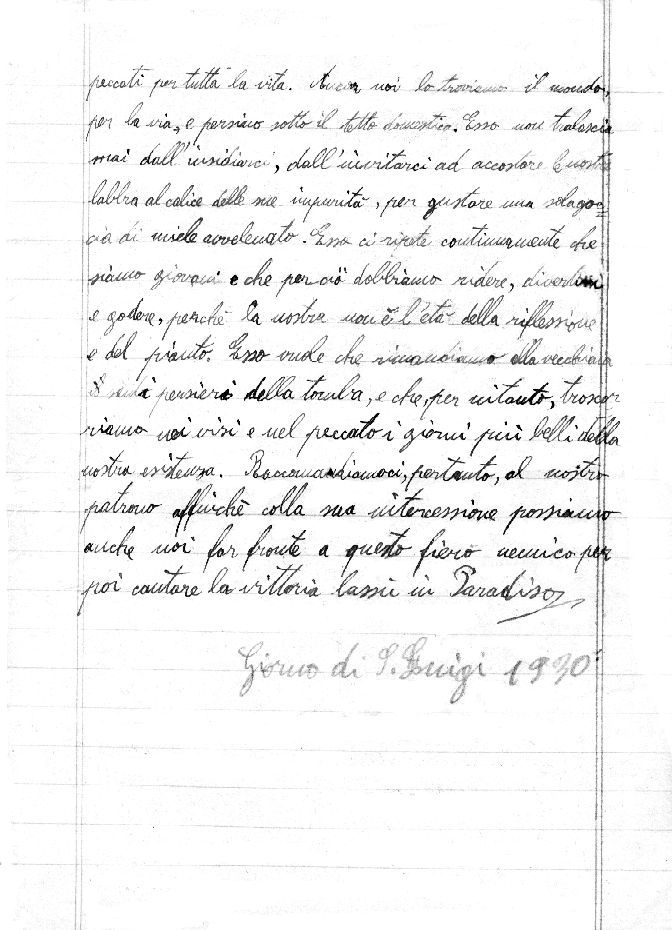 peccati per tutta la vita. Ancor noi lo troviamo il mondo,
per la via, e persino sotto il tetto domestico. Esso non tralascia
mai dall'insidiarci, dall'invitarci ad accostare le nostre
labbra al calice delle sue impurità, per gustare una
cia di miele avvelenato. Esso ci ripete continuamente che
siamo giovani e che perciò dobbiamo ridere, divertirci
e godere, perchè la nostra non è l'età della riflessione
e del pianto. Esso vuole che rimandiamo alla vecchiaia
pensieri della tomba, e che, per intanto, trascor
riamo nei vizi e nel peccato i giorni più belli della
nostra esistenza. Raccomandiamoci, pertanto, al nostro
patrono affinchè colla sua intercessione possiamo
anche noi far fronte a questo fiero nemico per
poi cantare la vittoria lassù in Paradiso
Giorno di S. Luigi 1930